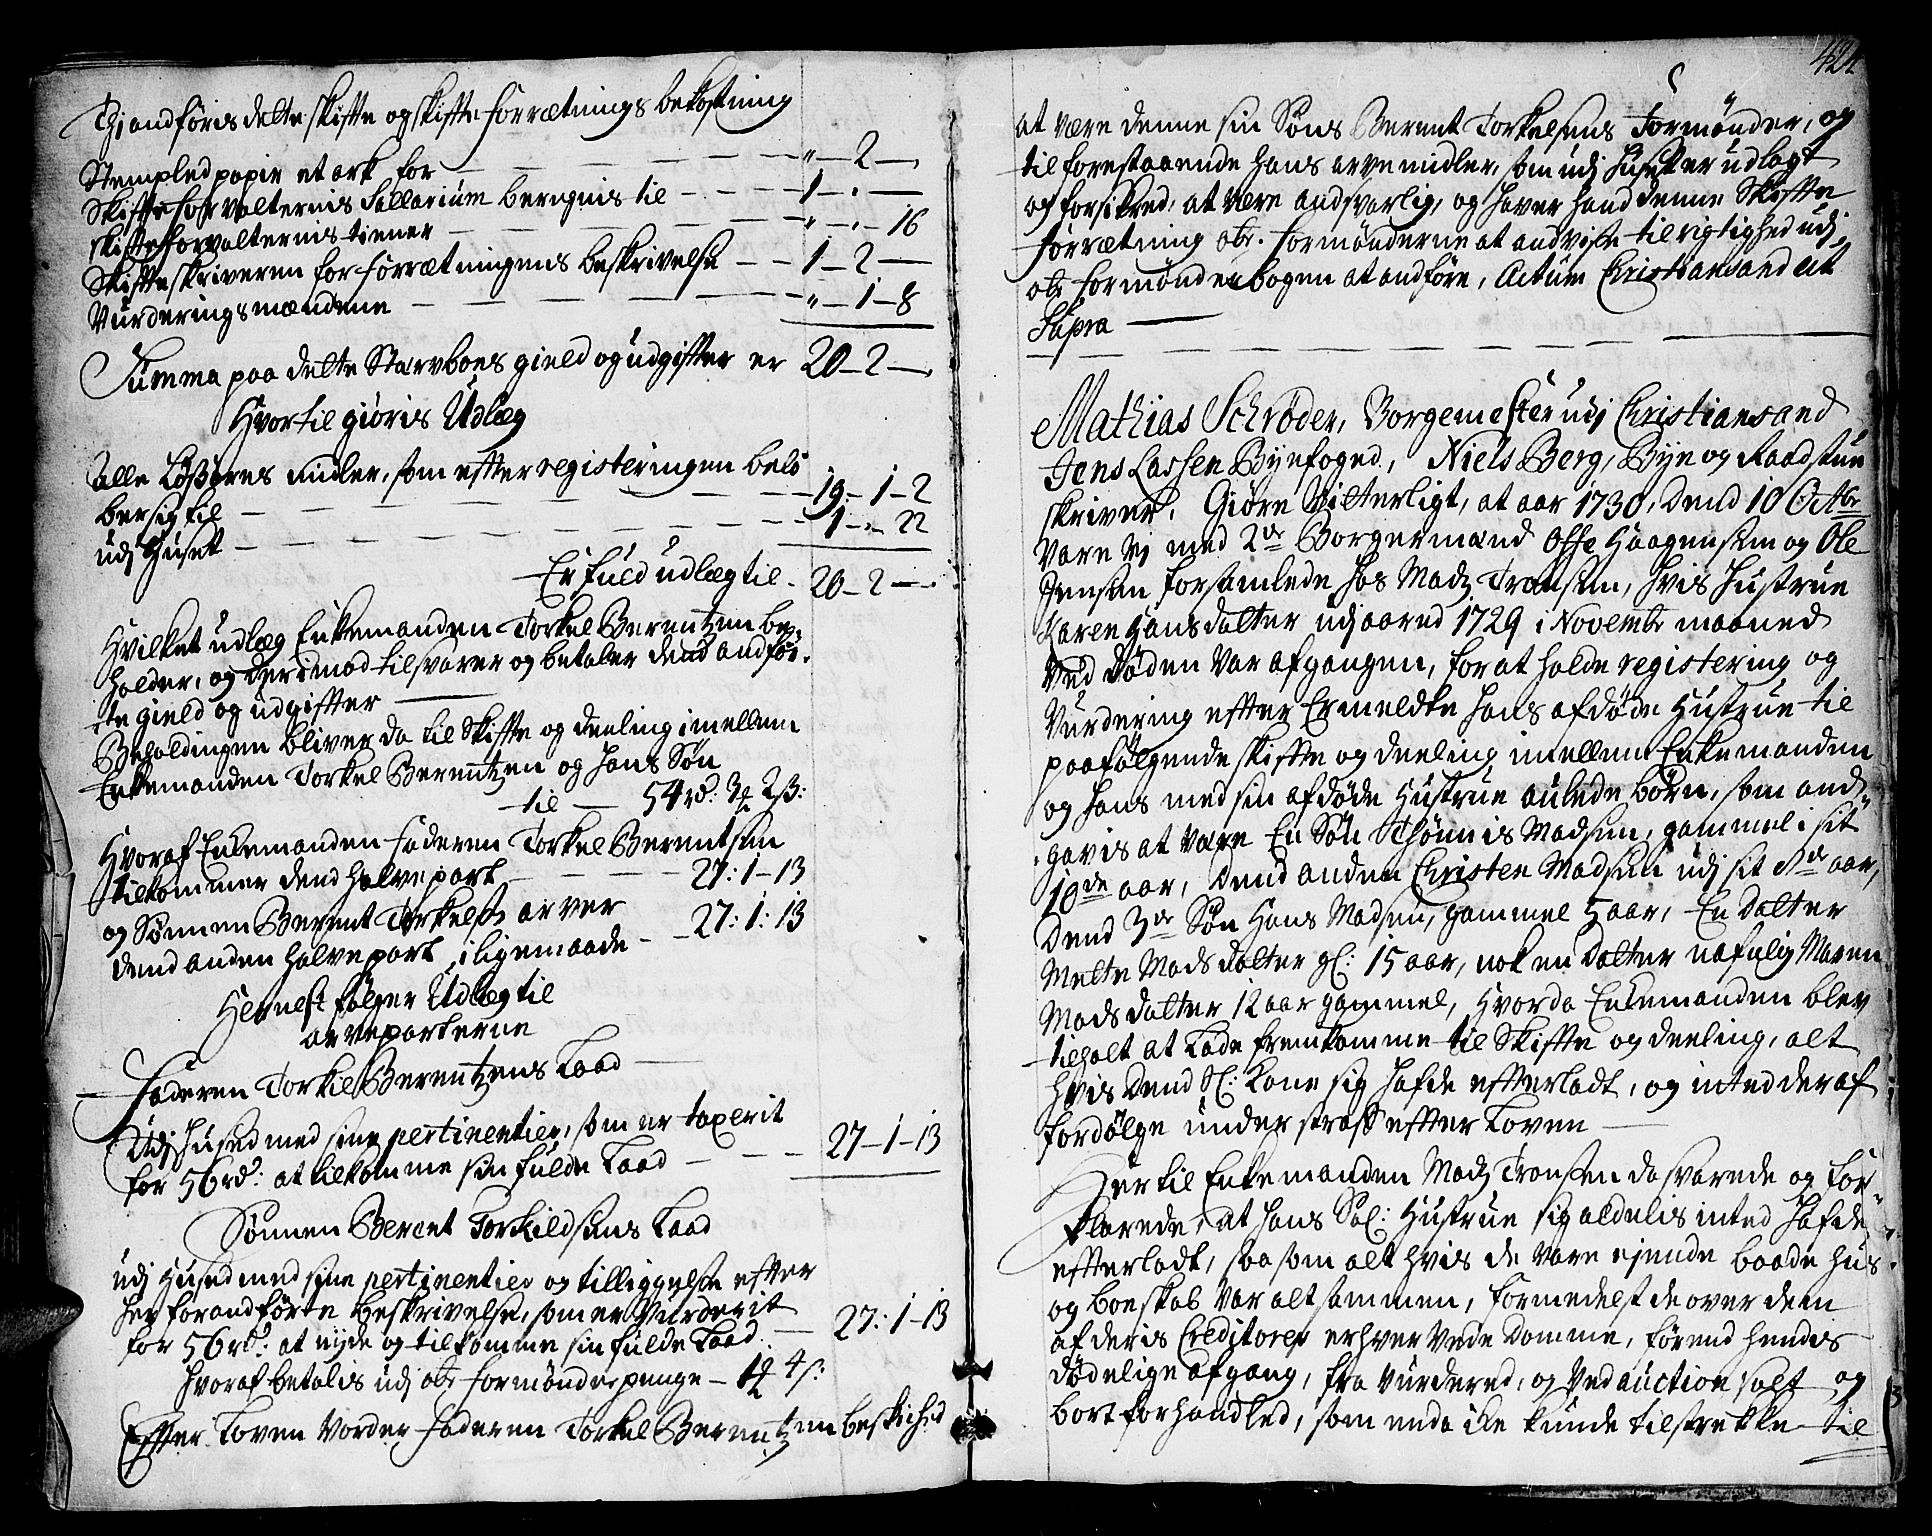 Thj andføris dette skifte og skifte forrætnings bekostning
Stempled papir et ark for — — — — " — 2 —
Skifte forvalternis Sallarium beregnis til — — — 1 — " —
skifte forvalternis tiener — — — — " — " — 16
Skifteskriveren for forrætningens beskrivelse — — 1 — 2 —
Vurderingsmændene — — — — " — 1 — 8
Summa paa dette Stervboes gield og udgifter er 20 — 2 — "
Hvortil giøris Udlæg
I alle Løsøres midler, som efter registeringen belø
ber sig til — — — — 19 — 1 — 2
udj Huset — — — — 1 — " — 22
Er fuld udlæg til — 20 — 2 — "
Hvilket udlæg Enkemanden Torkel Berentzen be-
holder, og derimod tilsvarer og betaler dend andfør-
te gield og udgifter —
Beholdingen bliver da til Skifte og deeling imellem
Enkemanden Torkel Berentzen og hans Søn
til — 54 rd: 3 ℔ 2 ß:
Hvoraf Enkemanden faderen Torkel Berentsen
tilkommer dend halve part — — — 27: 1 — 13
og Sønnen Berent Torkels: arver
dend anden halve part, i ligemaade — — 27: 1: 13
Hernest følger Udlæg til
arveparterne
Faderen Torkil Berentzens Laad —
Udj Hused med sine pertinentier, som er taxerit
for 56 rd: at tilkomme sin fulde Laad — — — 27 — 1 — 13
Sønnen Berent Torkildsens Laad
udj Hused med sine pertinentier og tilliggelse efter
her forandførte beskrivelse, som er Vurderit
for 56 rd: at nyde og tilkomme sin fulde Laad — 27: 1 — 13
hvoraf betalis udj obr formønder penge — 1 ℔ 4 ß:
Efter Loven vorder faderen Torkel Berentzen beskiched
424
at være denne sin Søns Berent Torkelsens Formønder, og
til forestaaende hans arvemidler, som udj Huset er udlagt
og forsikred, at være andsvarlig, og haver hand denne Skifte
forrætning obr. formønderne at andvise til rigtighed udj
obr formønder bogen at andføre, Actum Christiansand Ut
Supra —
Mathias Schrøder, Borgemester udj Christiansand
Jens Lassen Byefoged, Niels Berg, Bye og Raadstue
skriver, Giøre Vitterligt, at aar 1730, dend 10 Octbr
vare Vj med 2de Borgermænd Offe Haagensen og Ole
Jensen forsamlede hos Madz Tronsen, hvis Hustrue
Karen Hansdatter udj aared 1729 i Novembr maaned
Ved døden var afgangen, for at holde registering og
Vurdering efter Ermeldte hans afdøde Hustrue til
paafølgende skifte og deeling imellem Enkemanden
og hans med sin afdøde Hustrue aulede børn, som and-
gavis at være En Søn Thønnis Madsen, gammel i sit
18de aar, Dend anden Christen Madsen udj sit 8de aar,
Dend 3de Søn Hans Madsen, gammel 5 aar, En datter
Mette Mads datter gl: 15 aar, nok en datter nafnlig Maren
Mads datter 12 aar gammel, hvorda Enkemanden blev
tilholt at lade fremkomme til Skifte og deeling, alt
hvis dend Sl: Kone sig hafde efterladt, og inted deraf
fordølge under straff efter Loven —
Hertil Enkemanden Madz Tronsen da svarede og for-
klarede, at hans Sal: Hustrue sig aldelis inted hafde
efterladt, saasom alt hvis de vare ejende baade Hus
og boeskab var altsammen, formedelst de over dem
af deris Creditorer erhvervede Domme, førend hendis
dødelige afgang, fra vurdered, og ved auction solt og
bort forhandled, som enda icke kunde tilstrekke til